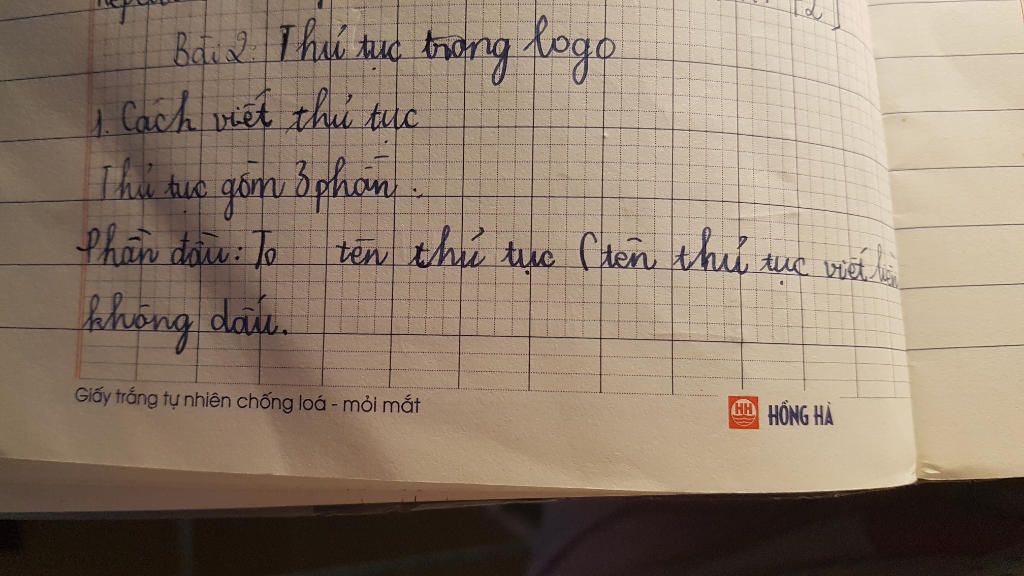 Bài 2: Thủ tục trong logo
1. Cách viết thủ tục
Thủ tục gồm 3 phần:
Phần đầu: To tên thủ tục (tên thủ tục viết liền
không dấu.
Giấy trắng tự nhiên chống loá - mỏi mắt
HH HỒNG HÀ